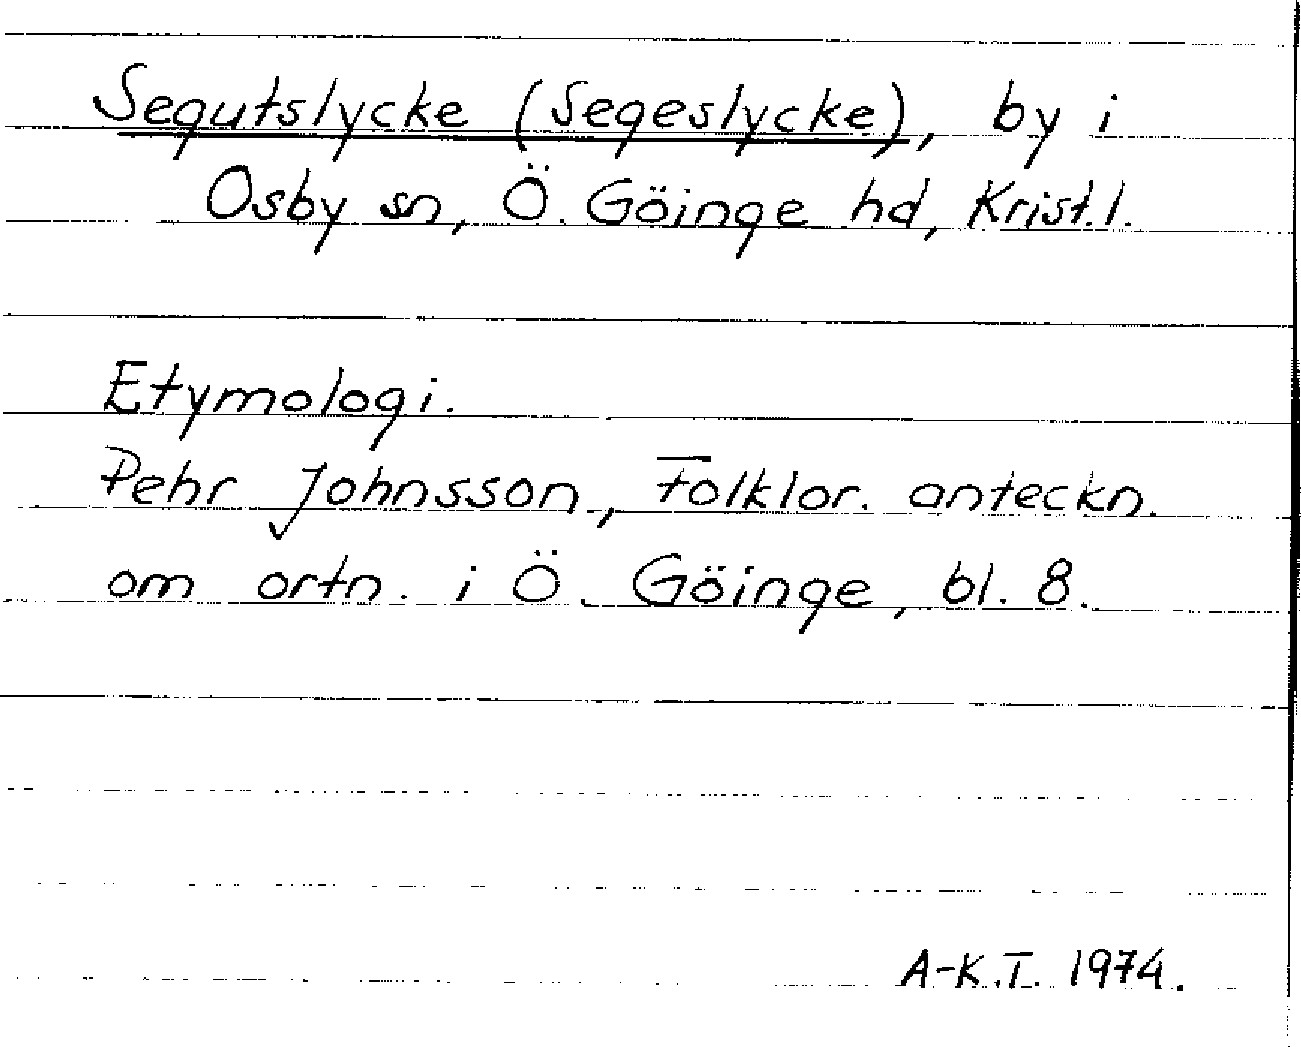 Segutslycke (Segeslycke), by i
Osby sn, Ö. Göinge hd, Krist. l.
Etymologi.
Pehr Johnsson, Folklor. anteckn.
om ortn. i Ö. Göinge, bl. 8.
A-K.T. 1974.